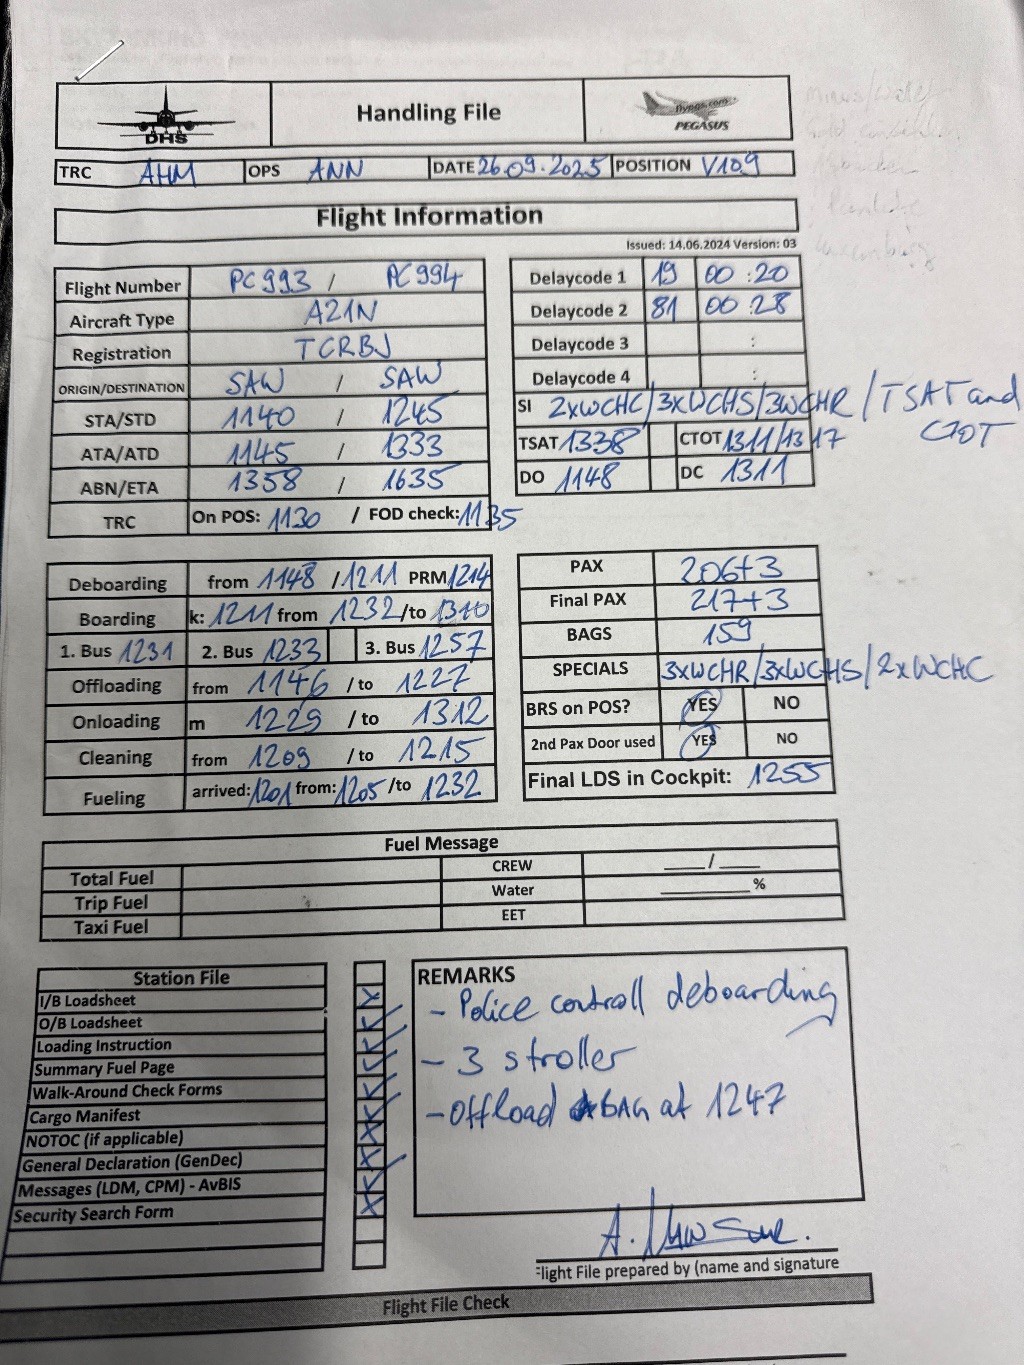 DHS
Handling File
flypgs.com
PEGASUS
TRC AHM OPS ANN DATE 26.09.2025 POSITION V109
Flight Information
Issued: 14.06.2024 Version: 03
Flight Number PC993 / PC994
Aircraft Type A21N
Registration TCRBJ
ORIGIN/DESTINATION SAW / SAW
STA/STD 1140 / 1245
ATA/ATD 1145 / 1333
ABN/ETA 1358 / 1635
TRC On POS: 1130 / FOD check: 1135
Delaycode 1 19 00:20
Delaycode 2 81 00:28
Delaycode 3 :
Delaycode 4 :
SI 2xWCHC/3xWCHS/3WCHR/TSAT and CTOT
TSAT 1338 CTOT 1311/1317
DO 1148 DC 1311
Deboarding from 1148 /1211 PRM 1214
Boarding k: 1211 from 1232 /to 1310
1. Bus 1231 2. Bus 1233 3. Bus 1257
Offloading from 1146 /to 1227
Onloading m 1229 /to 1312
Cleaning from 1209 /to 1215
Fueling arrived: 1201 from: 1205 /to 1232
PAX 206+3
Final PAX 217+3
BAGS 159
SPECIALS 3xWCHR/3xWCHS/2xWCHC
BRS on POS? YES NO
2nd Pax Door used YES NO
Final LDS in Cockpit: 1255
Fuel Message
Total Fuel CREW ____/____
Trip Fuel Water ________%
Taxi Fuel EET
Station File
I/B Loadsheet
O/B Loadsheet
Loading Instruction
Summary Fuel Page
Walk-Around Check Forms
Cargo Manifest
NOTOC (if applicable)
General Declaration (GenDec)
Messages (LDM, CPM) - AvBIS
Security Search Form
REMARKS
- Police controll deboarding
- 3 stroller
- Offload BAG at 1247
A.
Flight File prepared by (name and signature
Flight File Check